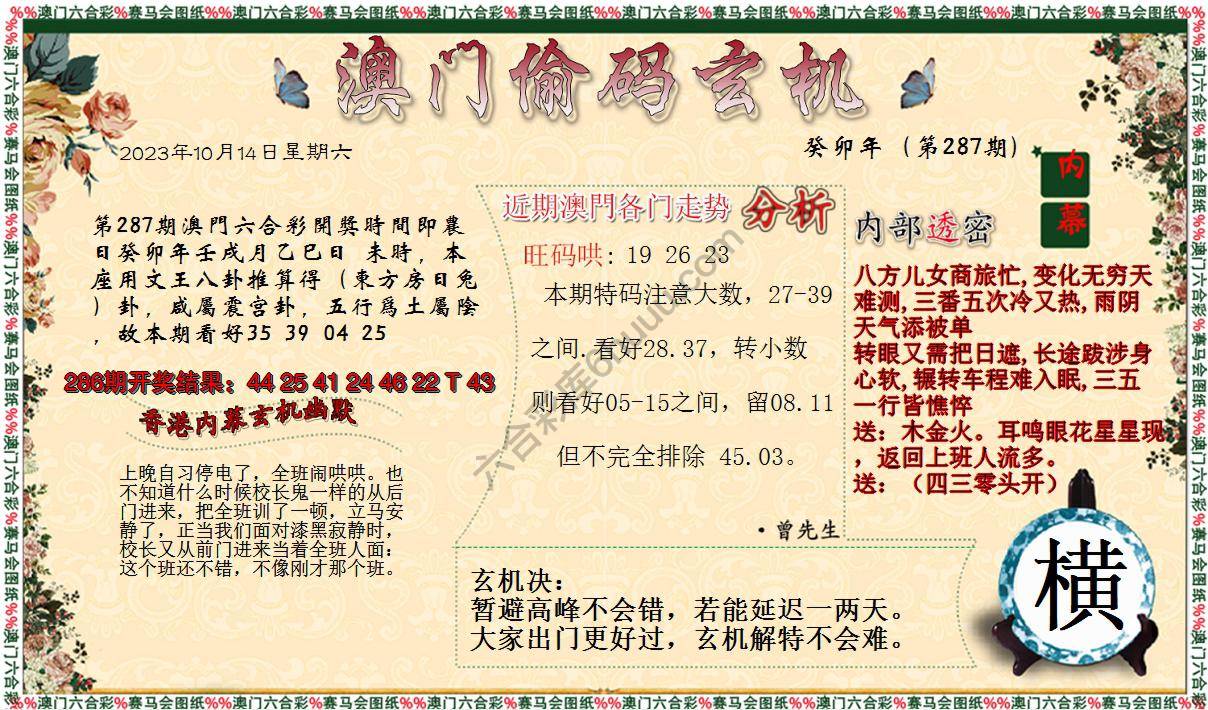 %%澳门六合彩%赛马会图纸%%澳门六合彩%赛马会图纸%%澳门六合彩%赛马会图纸%%澳门六合彩%赛马会图纸%%澳门六合彩%赛马会图纸%%澳门六合彩%赛马会图纸%%
澳门偷码玄机
2023年10月14日星期六
癸卯年（第287期）
内幕
第287期澳門六合彩開獎時間即農
日癸卯年壬戌月乙巳日 未時，本
座用文王八卦推算得（東方房日兔
）卦，咸屬震宫卦，五行爲土屬陰
，故本期看好35 39 04 25
286期开奖结果：44 25 41 24 46 22 T 43
香港内幕玄机幽默
上晚自习停电了，全班闹哄哄。也
不知道什么时候校长鬼一样的从后
门进来，把全班训了一顿，立马安
静了，正当我们面对漆黑寂静时，
校长又从前门进来当着全班人面：
这个班还不错，不像刚才那个班。
近期澳門各门走势 分析
旺码哄: 19 26 23
本期特码注意大数，27-39
之间.看好28.37，转小数
则看好05-15之间，留08.11
但不完全排除 45.03。
·曾先生
内部透密
八方儿女商旅忙,变化无穷天
难测,三番五次冷又热,雨阴
天气添被单
转眼又需把日遮,长途跋涉身
心软,辗转车程难入眠,三五
一行皆憔悴
送：木金火。耳鸣眼花星星现
，返回上班人流多。
送：（四三零头开）
玄机决：
暂避高峰不会错，若能延迟一两天。
大家出门更好过，玄机解特不会难。
横
%%澳门六合彩%赛马会图纸%%澳门六合彩%赛马会图纸%%澳门六合彩%赛马会图纸%%澳门六合彩%赛马会图纸%%澳门六合彩%赛马会图纸%%澳门六合彩%赛马会图纸%%